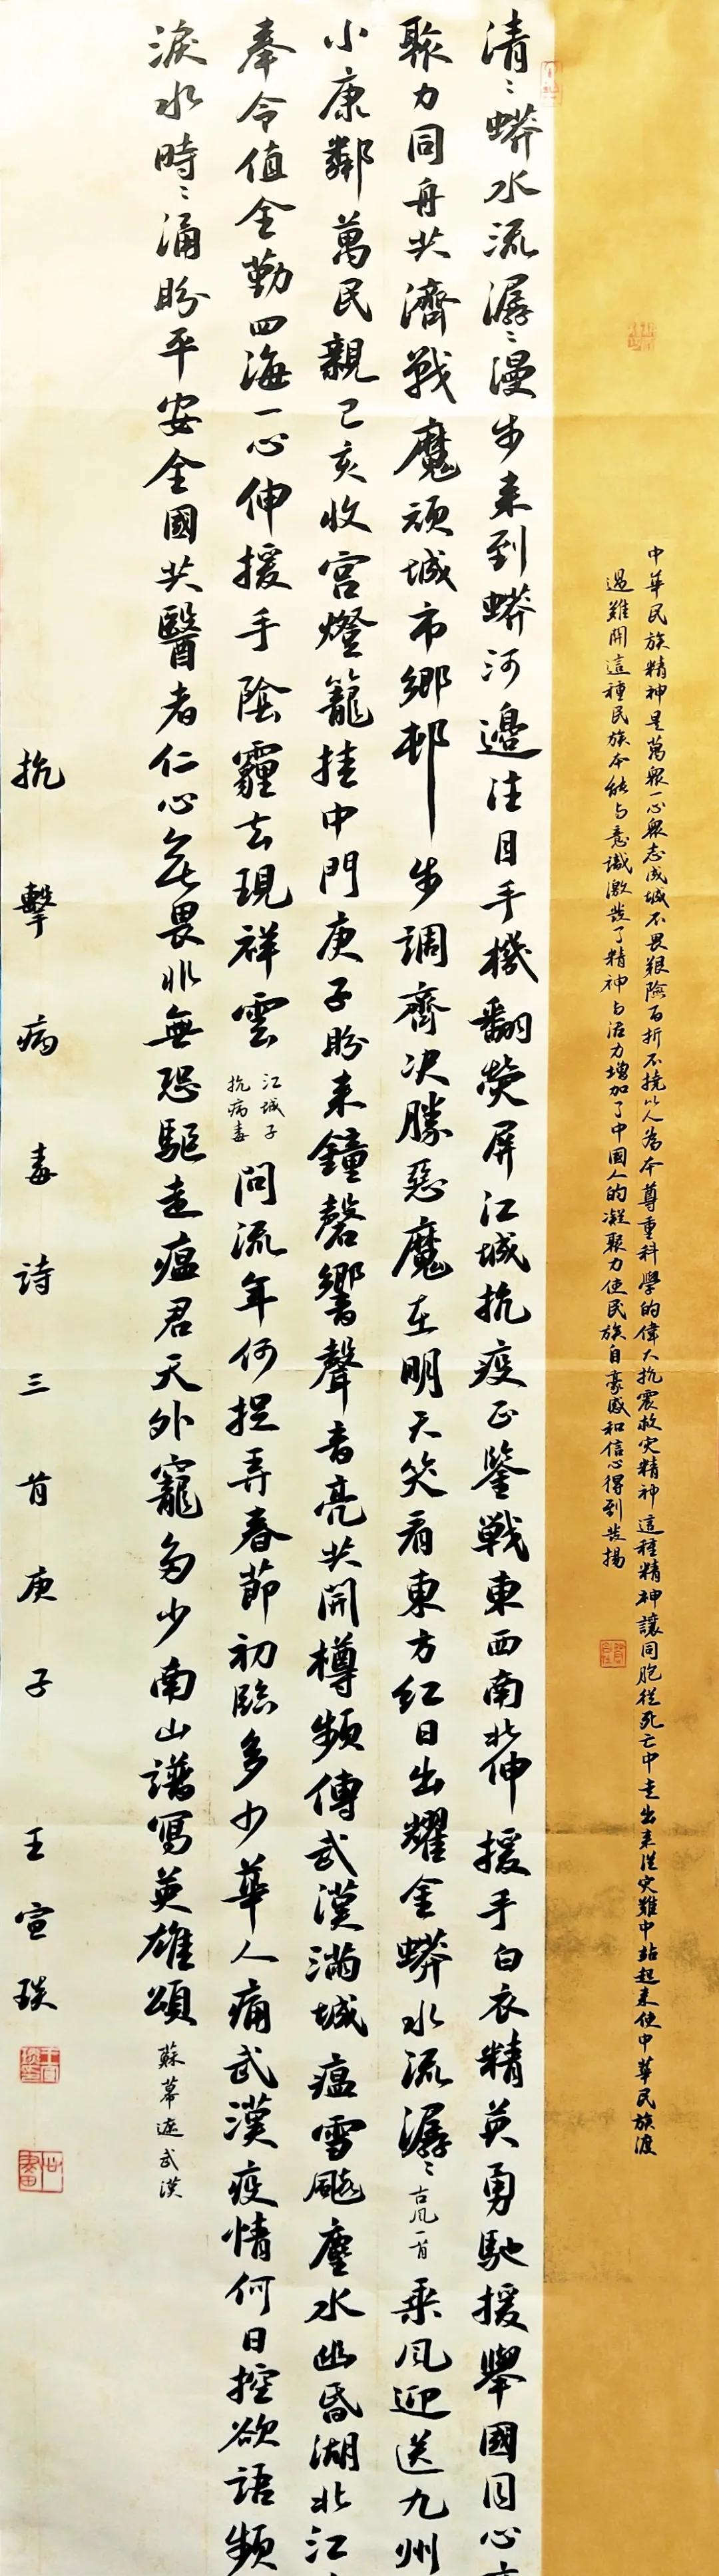 中華民族精神是萬眾一心眾志成城不畏艱險百折不撓以人為本尊重科學的偉大抗震救灾精神這種精神讓同胞從死亡中走出來從灾難中站起來使中華民族渡
過難關這種民族本能与意識激發了精神与活力增加了中國人的凝聚力使民族自豪感和信心得到發揚
清〻蟒水流潺〻漫步来到蟒河邊注目手機翻熒屏江城抗疫正鏖戰東西南北伸援手白衣精英勇馳援舉國同心
聚力同舟共濟戰魔頑城市鄉邨步調齊决勝惡魔在明天笑看東方紅日出耀金蟒水流潺〻
古风一首
乘风迎送九州
小康鄰萬民親己亥收宫燈籠挂中門庚子盼来鐘磬響聲音亮共開樽頻傳武漢滿城瘟雪飚塵水幽昏湖北江
奉令值全勤四海一心伸援手陰霾去現祥雲
江城子
抗病毒
問流年何捉弄春節初臨多少華人痛武漢疫情何日控欲語頻
淚水時〻涌盼平安全國共醫者仁心無畏非無恐驅走瘟君天外竄多少南山譜寫英雄頌
蘇幕遮武漢
抗擊病毒詩三首庚子 王宣琰